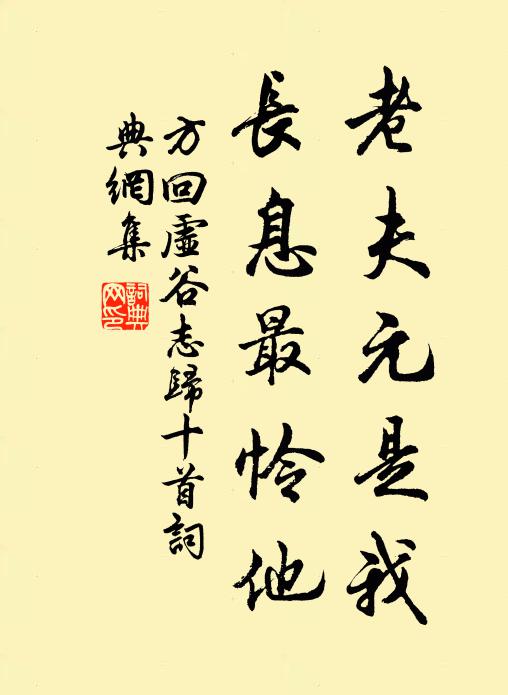 老夫元是我
長息最怜他
方回虛谷志歸十首詞
典網集
詞典網印